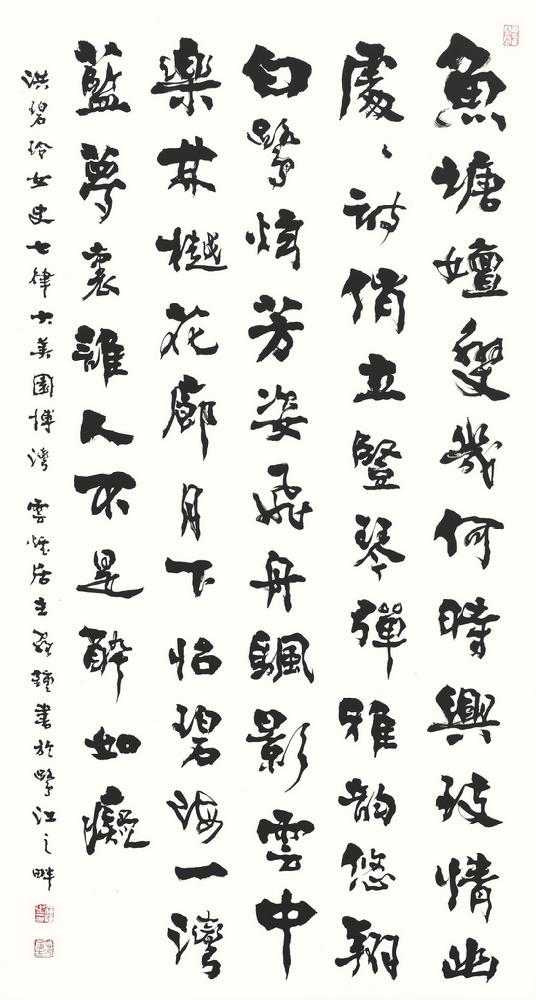 魚塘嬗變幾何時興致情幽
處〻詩俏立豎琴彈雅韵悠翔
白鷺炫芳姿飛舟颿影雲中
樂林樾花廊月下怡碧海一灣
藍夢裏誰人不是醉如癡
洪碧玲女史七律大美園博灣 雲煙居主 鍾書於鷺江之畔